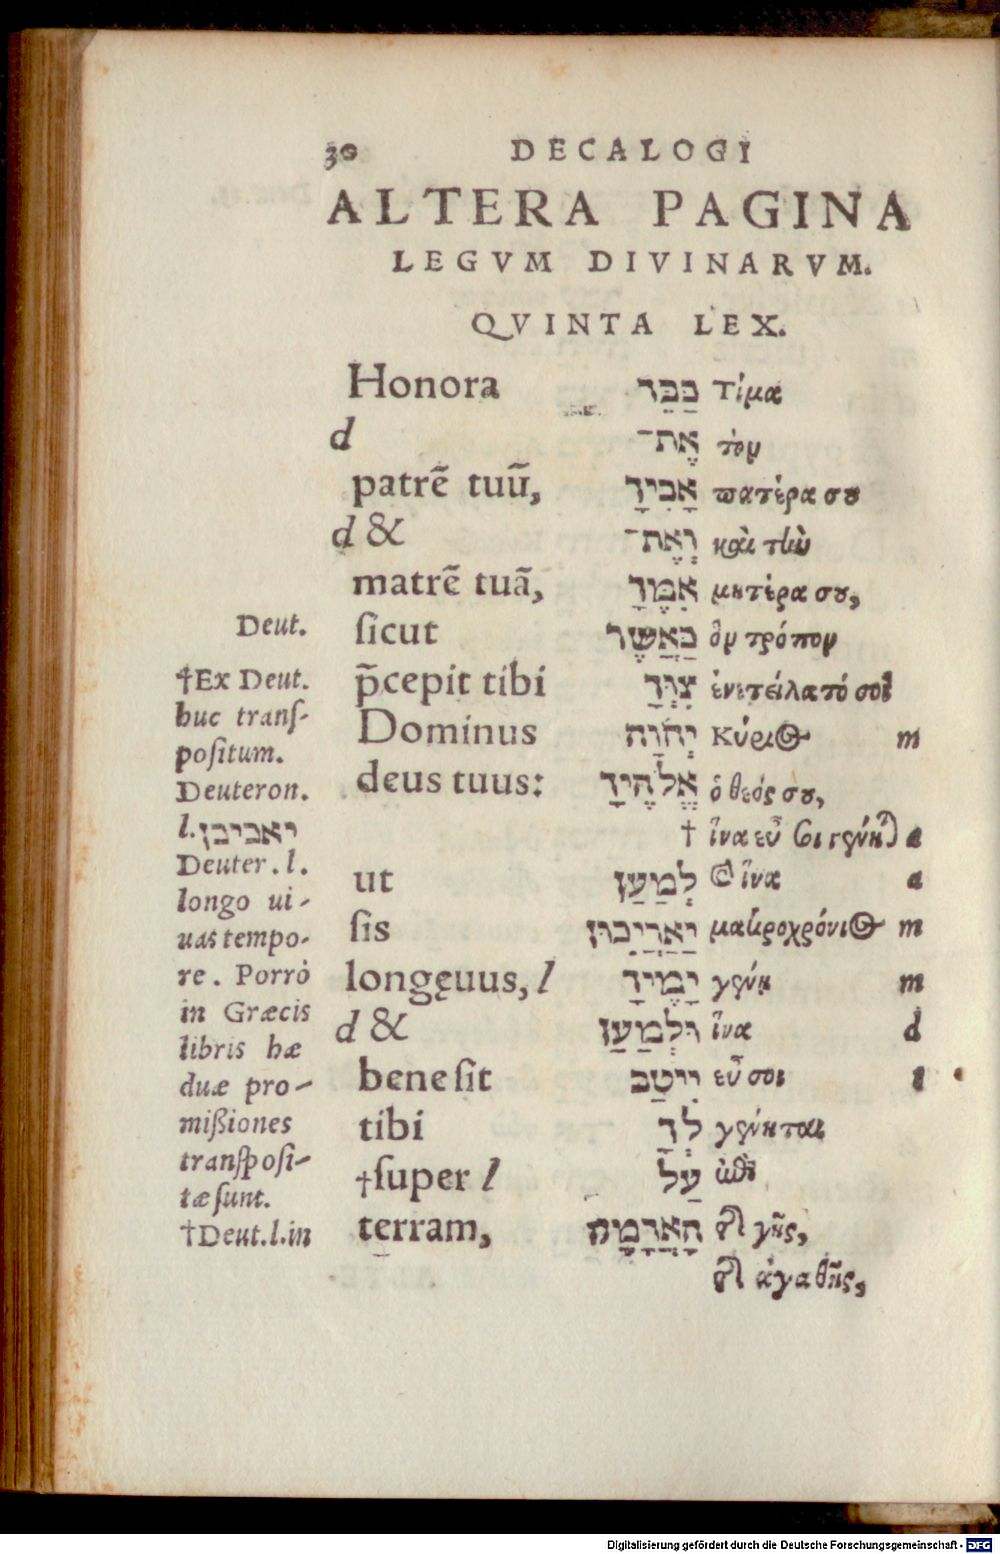 30 DECALOGI
ALTERA PAGINA
LEGVM DIVINARVM.
QVINTA LEX.
Honora כַּבֵּד Τίμα
d אֶת־ τὸν
patrẽ tuũ, אָבִיךָ πατέρα σου
d & וְאֶת־ καὶ τὴν
matrẽ tuã, אִמֶּךָ μητέρα σου,
Deut. sicut כַּאֲשֶׁר ὃν τρόπον
†Ex Deut. p̃cepit tibi צִוְּךָ ἐνετείλατό σοι
huc trans-
Dominus יְהוָה κύριος m
positum.
Deuteron. deus tuus: אֱלֹהֶיךָ ὁ θεός σου,
l. יאריכן † ἵνα εὖ σοι γένη) a
Deuter. l. ut לְמַעַן ἵνα a
longo ui-
sis יַאֲרִיכוּן μακροχρόνιος m
uas tempo-
re. Porrò longęuus, l יָמֶיךָ γένη m
in Græcis d & וּלְמַעַן ἵνα d
libris hæ
duæ pro- bene sit יִיטַב εὖ σοι l
mißiones tibi לָךְ γένηται
transposi- †super l עַל ἐπὶ
tæ sunt.
†Deut. l. in terram, הָאֲדָמָה τῆς γῆς,
τῆς ἀγαθῆς,